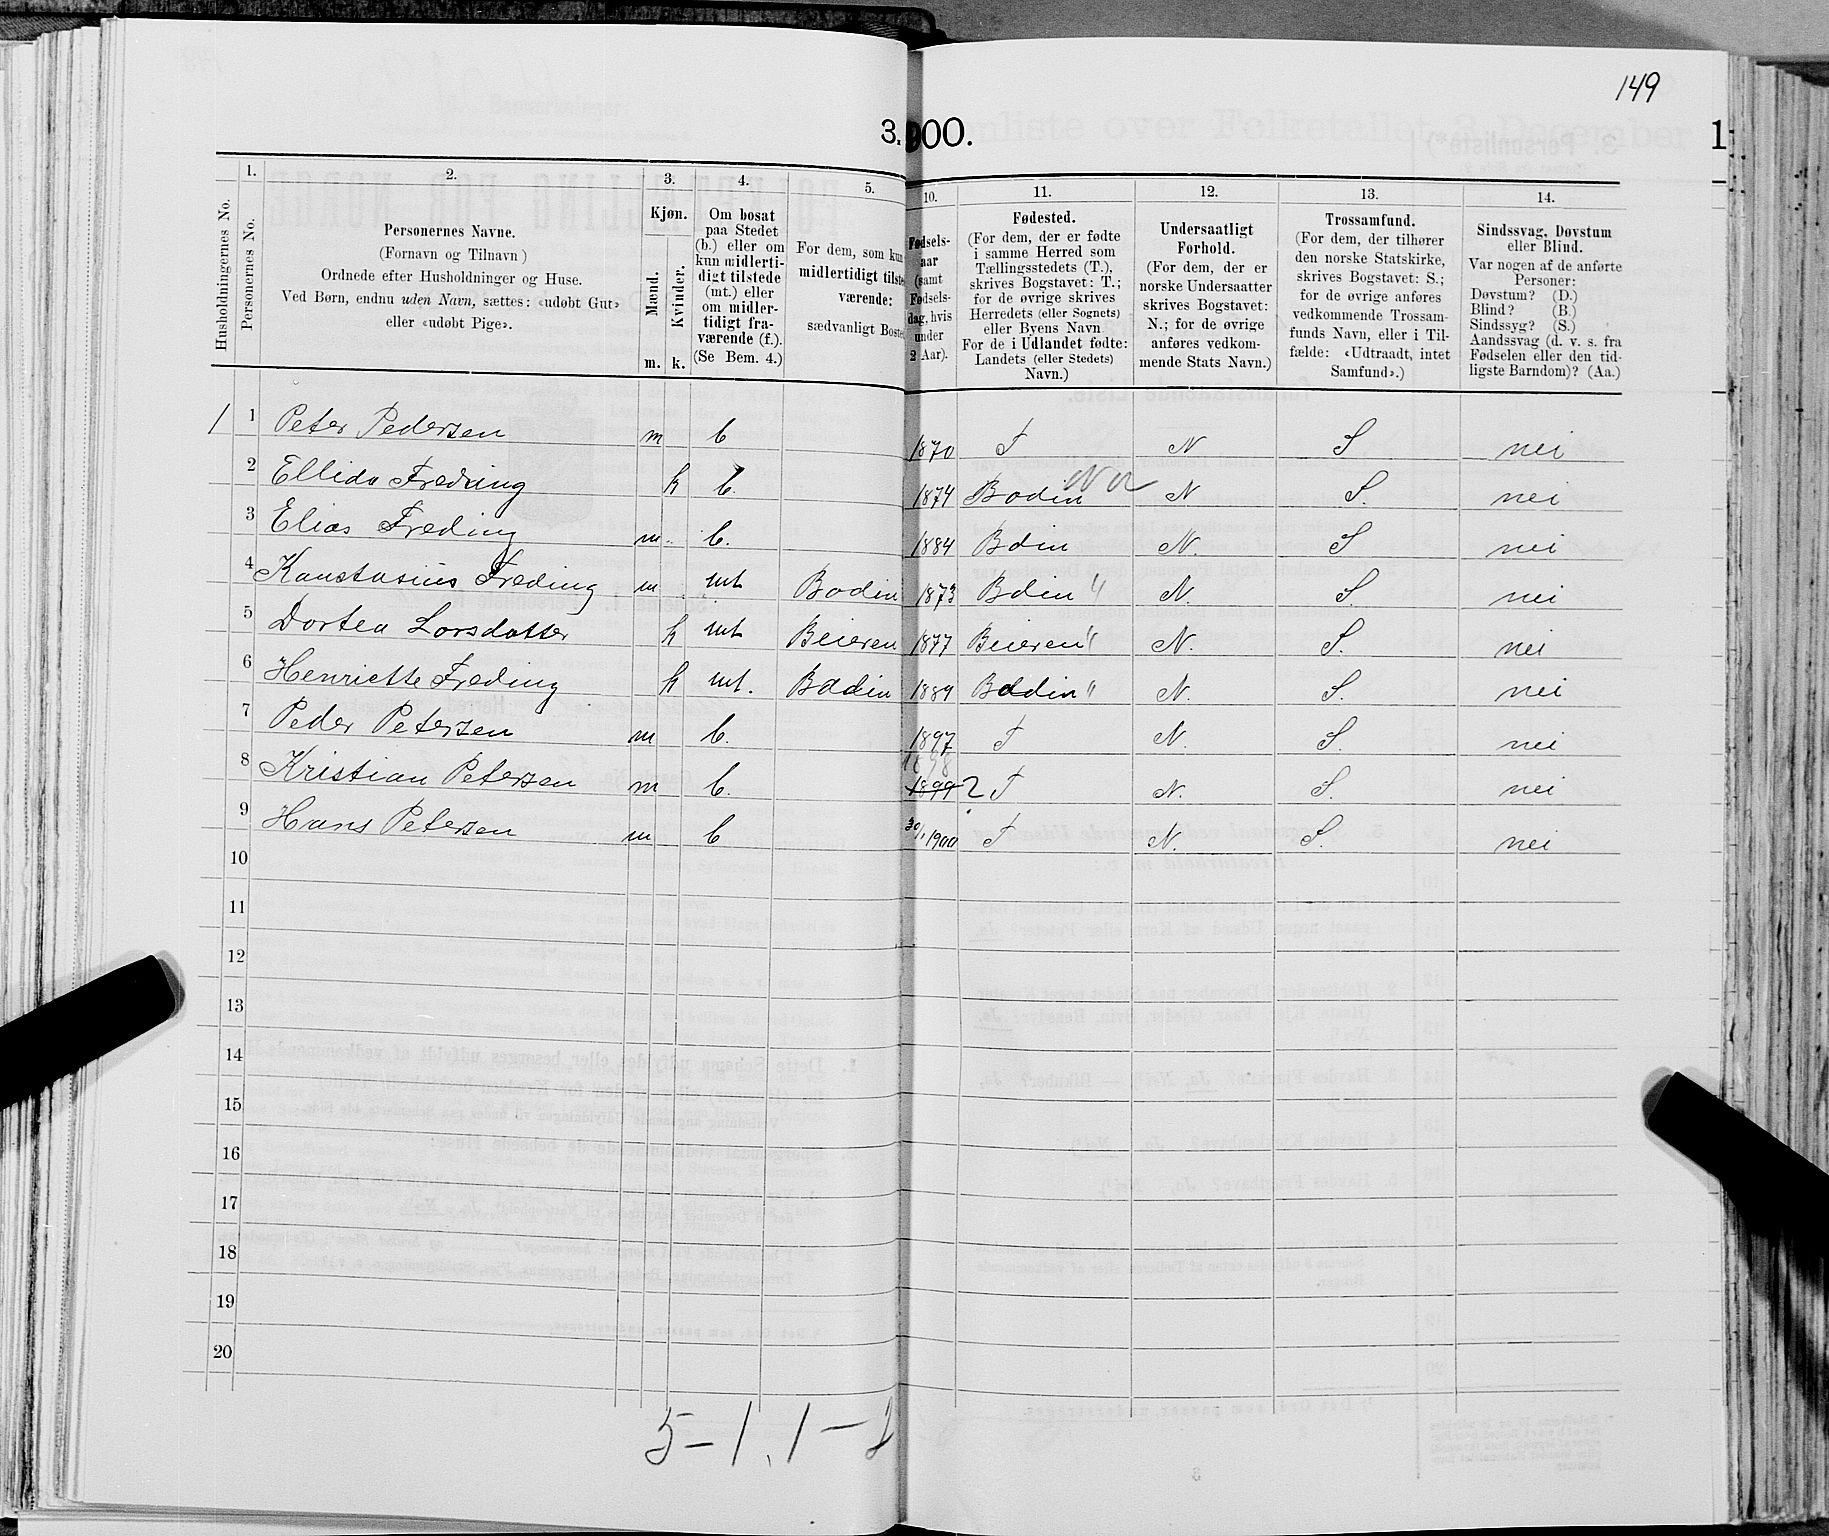 149
3. 900. 1
1. 2. 3. 4. 5. 10. 11. 12. 13. 14.
Husholdningernes No.
Personernes No.
Personernes Navne.
(Fornavn og Tilnavn)
Ordnede efter Husholdninger og Huse.
Ved Børn, endnu uden Navn, sættes: «udøbt Gut»
eller «udøbt Pige».
Kjøn.
Mænd.
Kvinder.
m. k.
Om bosat
paa Stedet
(b.) eller om
kun midlerti-
digt tilstede
(mt.) eller
om midler-
tidigt fra-
værende (f.).
(Se Bem. 4.)
For dem, som kun
midlertidigt tilste
værende:
sædvanligt Boste
Fødsels-
aar
(samt
Fødsels-
dag, hvis
under
2 Aar).
Fødested.
(For dem, der er fødte
i samme Herred som
Tællingsstedets (T.),
skrives Bogstavet: T.;
for de øvrige skrives
Herredets (eller Sognets)
eller Byens Navn
For de i Udlandet fødte:
Landets (eller Stedets)
Navn.)
Undersaatligt
Forhold.
(For dem, der er
norske Undersaatter
skrives Bogstavet:
N.; for de øvrige
anføres vedkom-
mende Stats Navn.)
Trossamfund.
(For dem, der tilhører
den norske Statskirke,
skrives Bogstavet: S.;
for de øvrige anføres
vedkommende Trossam-
funds Navn, eller i Til-
fælde: «Udtraadt, intet
Samfund».)
Sindssvag, Døvstum
eller Blind.
Var nogen af de anførte
Personer:
Døvstum? (D.)
Blind? (B.)
Sindssyg? (S.)
Aandssvag (d. v. s. fra
Fødselen eller den tid-
ligste Barndom)? (Aa.)
1 1 Peter Pedersen m b 1870 T N S nei
2 Ellida Freding k b. 1874 Bodin No N S. nei
3 Elias Freding m. b. 1884 Bdin N. S nei
4 Kanstasius Freding m mt Bodin 1873 Bdin " N. S. nei
5 Dortea Larsdatter k mt Beieren 1877 Beieren " N. S. nei
6 Henriette Freding k mt. Bodin 1889 Bodin " N. S. nei
7 Peder Petersen m b. 1897 T N. S. nei
1898
8 Kristian Petersen m b. 1899 2 T N. S. nei
9 Hans Petersen m b 30/1 1900 T N. S. nei
10
11
12
13
14
15
16
17
18
19
20
5-1. 1-2